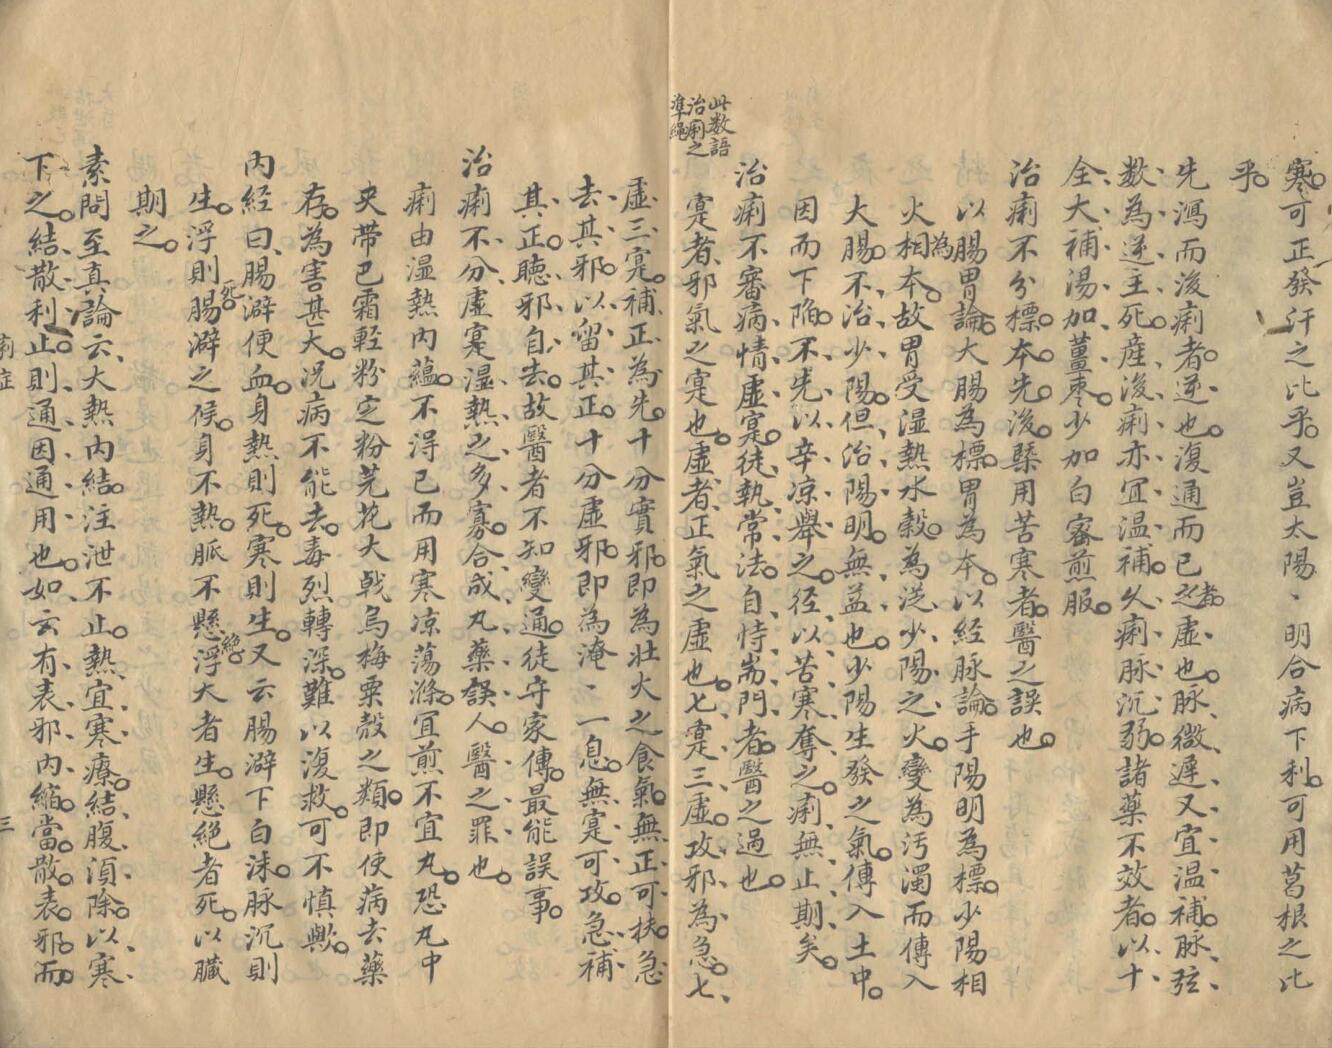 寒。可正發汗之比乎。又豈太陽、明合病下利。可用葛根之比
乎。
先瀉而後痢者。逆也。復通而已之者。虛也。脉微遲。又宜温補。脉弦
数。為逆主死。産後痢亦宜温補。久痢脉沉弱。諸藥不效者。以十
全大補湯加薑棗。少加白蜜煎服。
治痢不分標本先後。槩用苦寒者。醫之誤也。
以腸胃論。大腸為標。胃為本。以經脉論。手陽明為標。少陽相
火相為本。故胃受湿熱水穀。為從少陽之火。變為汚濁而傳入
大腸。不治少陽。但治陽明。無益也。少陽生發之氣。傳入土中。
因而下陷。不先以辛凉舉之。径以苦寒奪之。痢無止期矣。
治痢不審病情虛寔。徒執常法。自恃耑門者。醫之過也。
此数語
治痢之
準繩
寔者。邪氣之寔也。虛者。正氣之虛也。七寔三虛。攻邪為急。七
虛三寔。補正為先。十分實邪。即為壯火之食氣。無正可扶。急
去其邪。以留其正。十分虛邪。即為淹、一息。無寔可攻。急補
其正。聴邪自去。故醫者不知變通。徒守家傳。最能誤事。
治痢不分虛寔湿熱之多寡。合成丸藥誤人。醫之罪也。
痢由湿熱內藴。不得已而用寒凉蕩滌。宜煎不宜丸。恐丸中
夹帶巴霜輕粉定粉芫花大戟烏梅粟殼之類。即便病去藥
存。為害甚大。况病不能去。毒烈轉深。難以復救。可不慎歟。
內经曰。腸澼便血。身熱則死。寒則生。又云腸澼下白沫。脉沉則
生。浮則死。腸澼之候。身不熱。脈不懸絕。浮大者生。懸絕者死。以臟
期之。
素問至真論云。大熱內結。注泄不止。熱宜寒療。結腹須除。以寒
下之。結散利止。則通因通用也。如云有表邪內縮。當散表邪。而
三